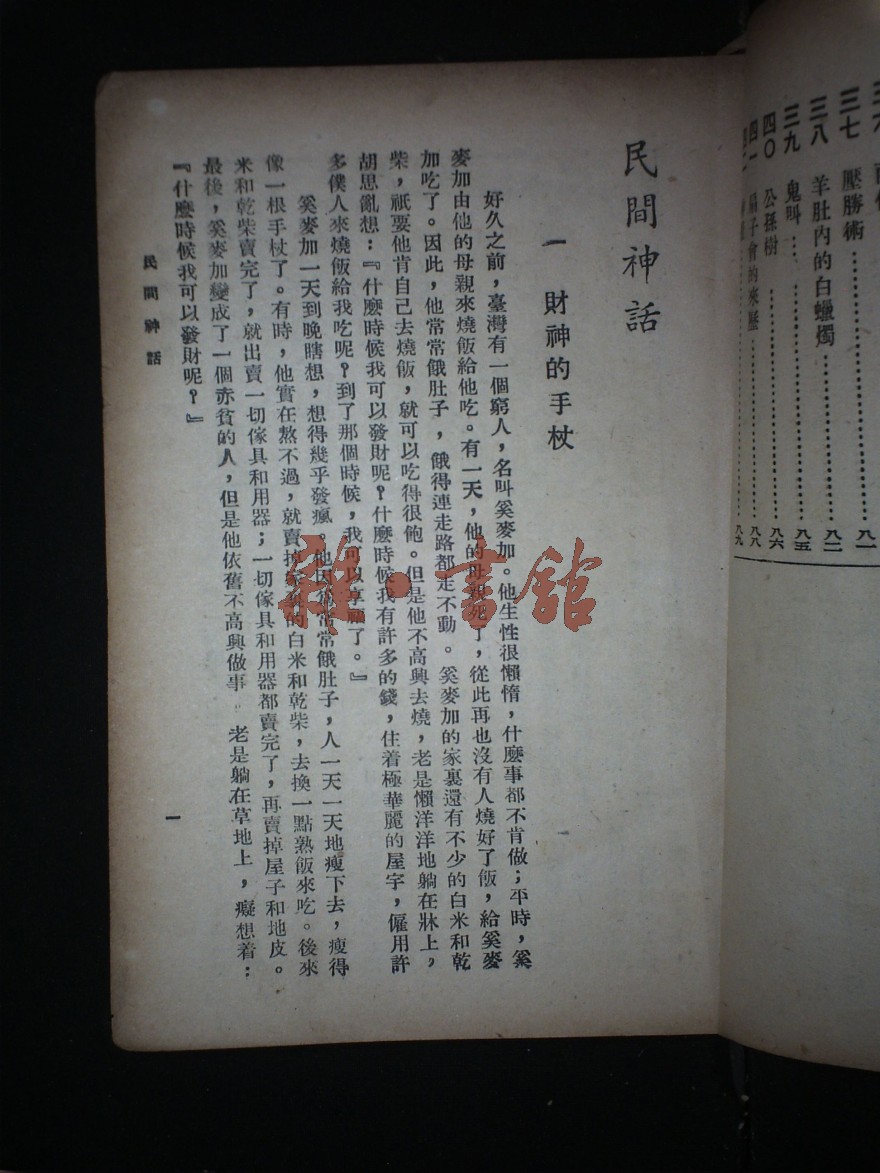 三七　壓勝術……八一
三八　羊肚內的白蠟燭……八二
三九　鬼叫……八五
四〇　公孫樹……八六
四一　扇子會的來歷……八八
八九
民間神話
一　財神的手杖
好久之前，臺灣有一個窮人，名叫奚麥加。他生性很懶惰，什麼事都不肯做；平時，奚
麥加由他的母親來燒飯給他吃。有一天，他的母親死了，從此再也沒有人燒好了飯，給奚麥
加吃了。因此，他常常餓肚子，餓得連走路都走不動。奚麥加的家裏還有不少的白米和乾
柴，祇要他肯自己去燒飯，就可以吃得很飽。但是他不高興去燒，老是懶洋洋地躺在牀上，
胡思亂想：『什麼時候我可以發財呢？什麼時候我有許多的錢，住着極華麗的屋宇，僱用許
多僕人來燒飯給我吃呢？到了那個時候，我可以享福了。』
奚麥加一天到晚瞎想，想得幾乎發瘋　他因爲常常餓肚子，人一天一天地瘦下去，瘦得
像一根手杖了。有時，他實在熬不過，就賣掉家裏的白米和乾柴，去換一點熟飯來吃。後來
米和乾柴賣完了，就出賣一切傢具和用器；一切傢具和用器都賣完了，再賣掉屋子和地皮。
最後，奚麥加變成了一個赤貧的人，但是他依舊不高興做事。老是躺在草地上，癡想着：
『什麼時候我可以發財呢？』
民間神話
一
雜·書館